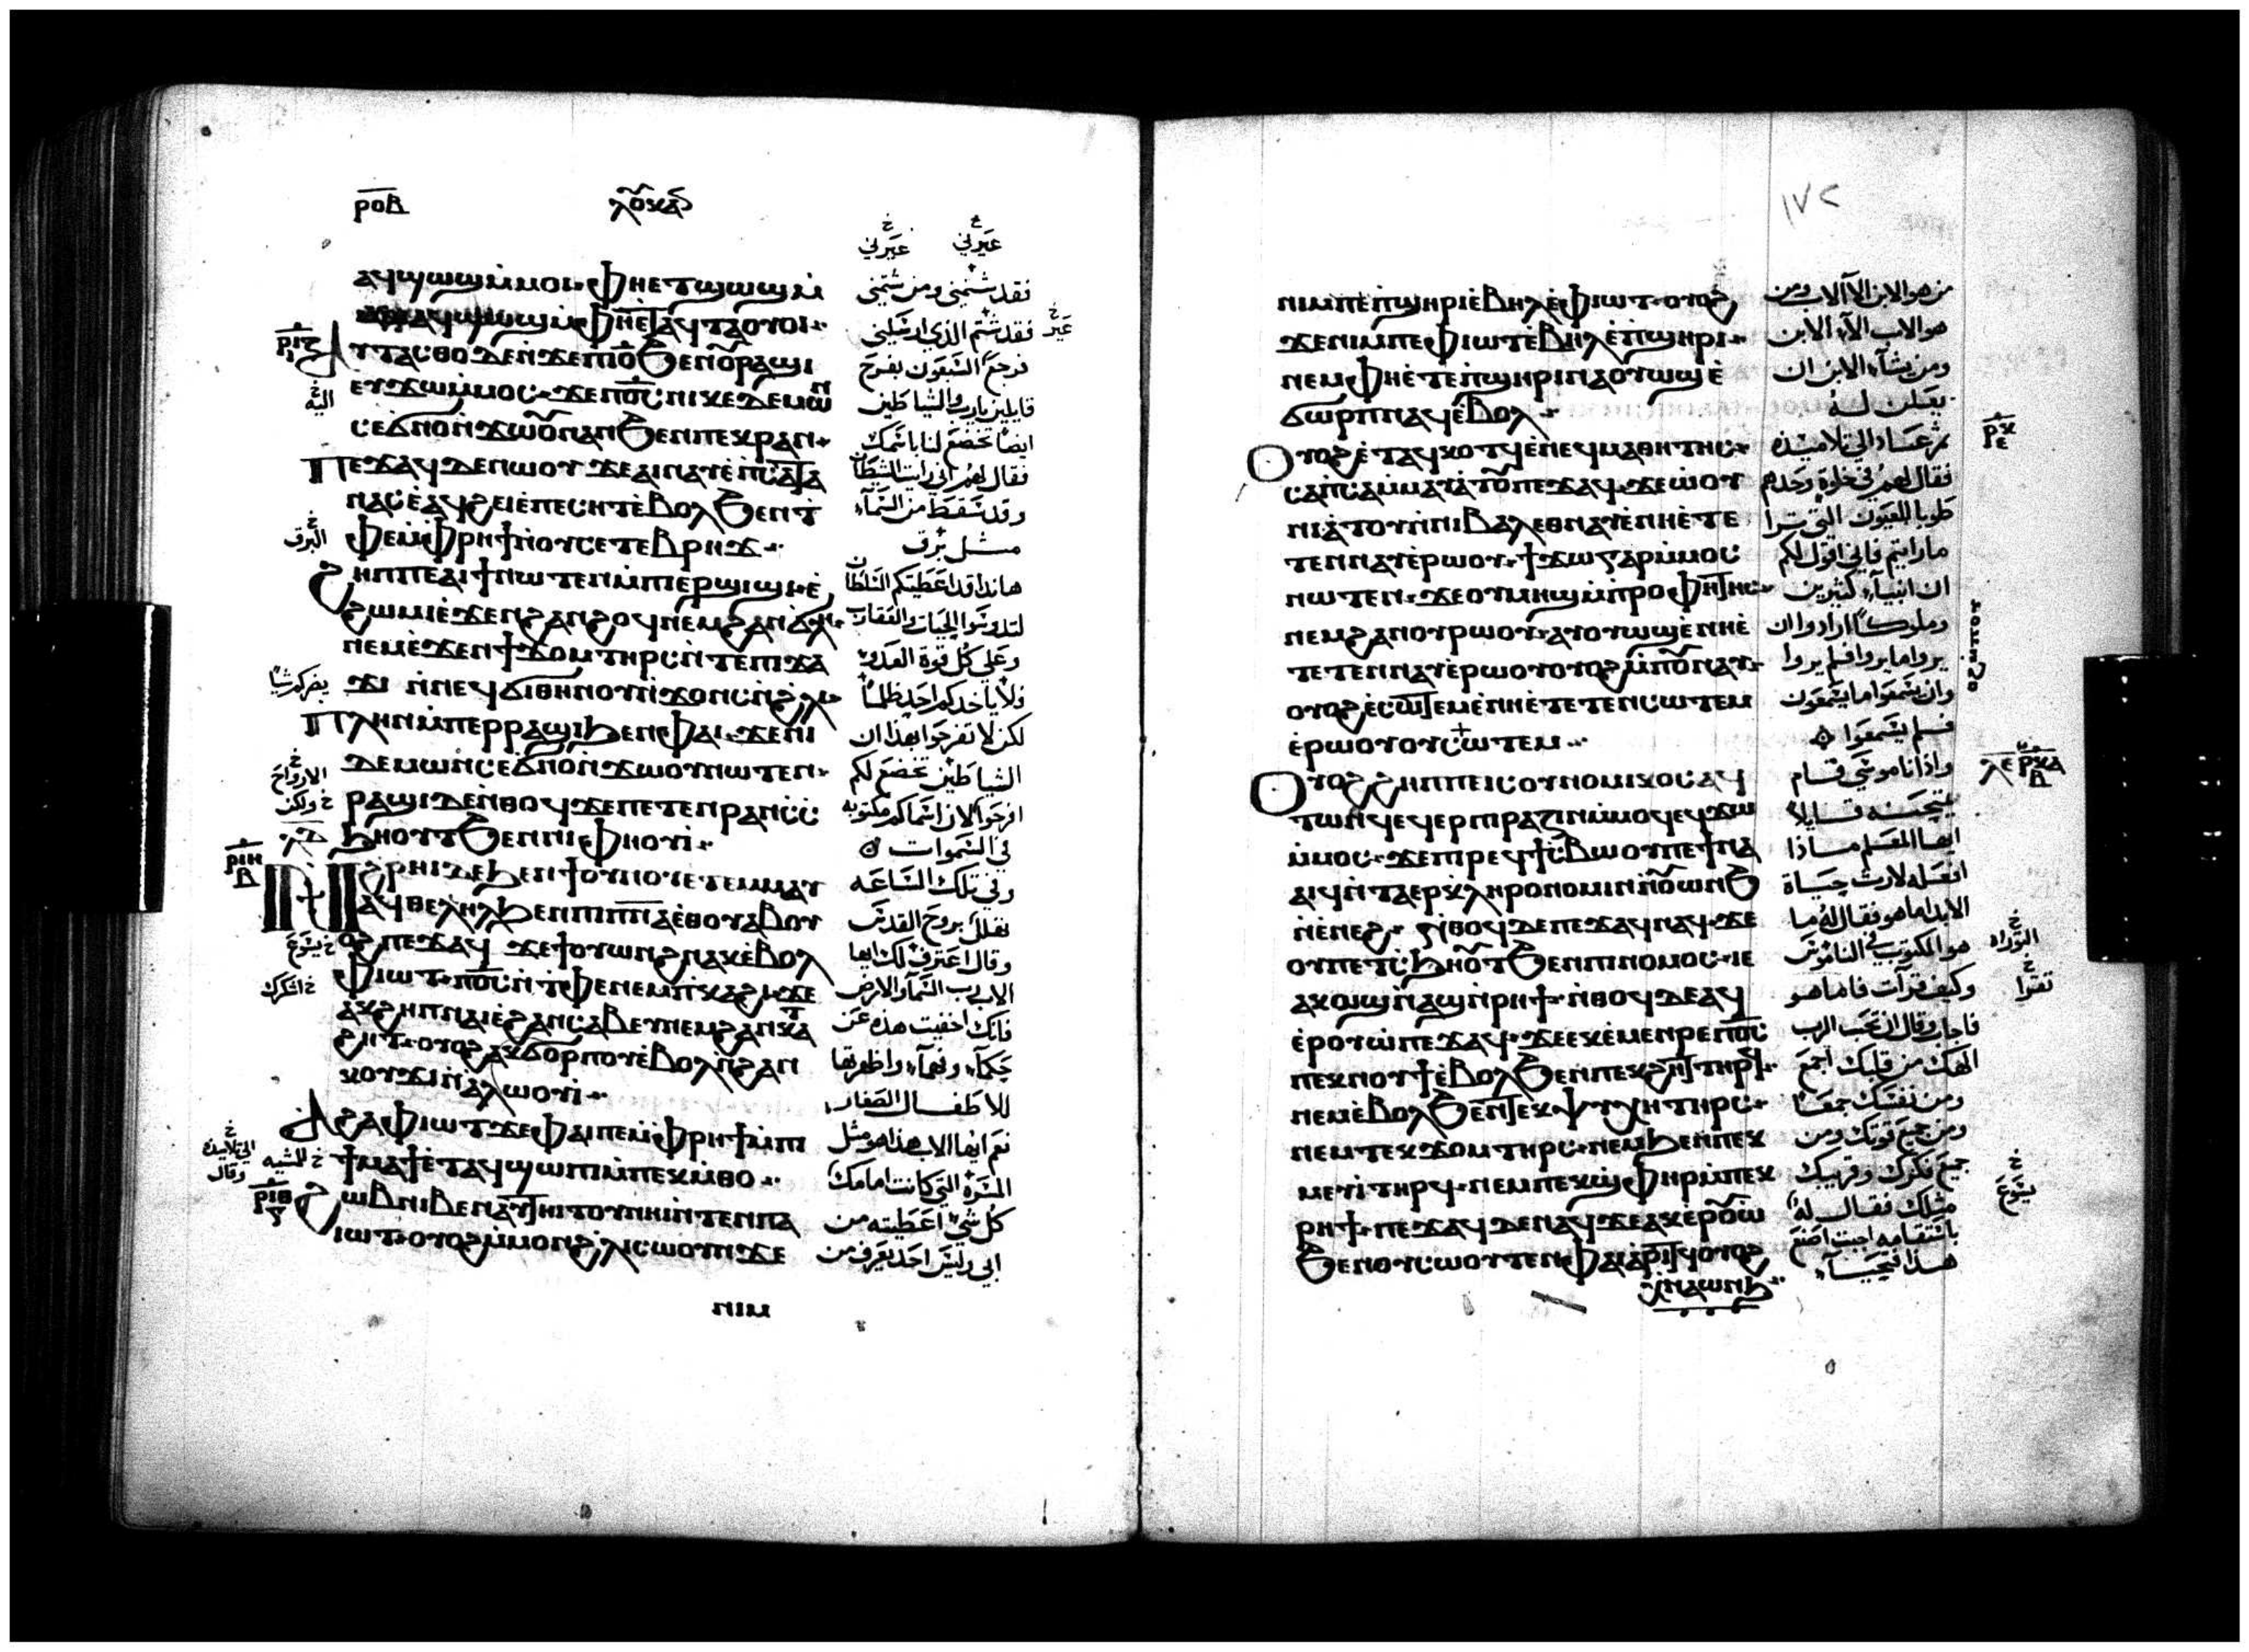 ⲣⲟⲃ
ⲗⲟⲩⲕⲁⲥ
ⲁϥϣⲱϣ ⲙ̀ⲙⲟⲓ ⲫⲏⲉⲧϣⲱϣ ⲙ̀
ⲁϥϣⲱϣ ⲙ̀ⲫⲏⲉ̀ⲧⲁϥⲧⲁⲟⲩⲟⲓ
ⲁⲩⲧⲁⲥⲑⲟ ⲇⲉ ⲛ̀ϫⲉ ⲡⲓⲟ̅ ϧⲉⲛ ⲟⲩⲣⲁϣⲓ
ⲉⲩϫⲱ ⲙ̀ⲙⲟⲥ ϫⲉ ⲡⲟ̅ⲥ̅ ⲛⲓⲕⲉⲇⲉⲙⲱⲛ
ⲥⲉϭⲛⲟⲛ ⲛ̀ϫⲱⲟⲩ ⲛⲁⲛ ϧⲉⲛ ⲡⲉⲕⲣⲁⲛ
ⲡⲉϫⲁϥ ⲇⲉ ⲛⲱⲟⲩ ϫⲉ ⲁⲓⲛⲁⲩ ⲉ̀ⲡⲥⲁⲧⲁ
ⲛⲁⲥ ⲉ̀ⲁϥϩⲉⲓ ⲉ̀ⲡⲉⲥⲏⲧ ⲉ̀ⲃⲟⲗ ϧⲉⲛ ⲧ
ⲫⲉ ⲙ̀ⲫⲣⲏϯ ⲛ̀ⲟⲩⲥⲉⲧⲉⲃⲣⲏϫ
ϩⲏⲡⲡⲉ ⲁⲓϯ ⲛⲱⲧⲉⲛ ⲙ̀ⲡⲓⲉⲣϣⲓϣⲓ ⲉ̀
ϩⲱⲙⲓ ⲉ̀ϫⲉⲛ ϩⲁⲛϩⲟϥ ⲛⲉⲙ ϩⲁⲛϭⲗⲏ
ⲛⲉⲙ ⲉ̀ϫⲉⲛ ϯϫⲟⲙ ⲧⲏⲣⲥ ⲛ̀ⲧⲉ ⲡⲓϫⲁ
ϫⲓ ⲛ̀ⲛⲉϥϭⲓ ⲑⲏⲛⲟⲩ ⲛ̀ϫⲟⲛⲥ ⲛ̀ϩⲗⲓ
ⲡⲗⲏⲛ ⲙ̀ⲡⲉⲣⲣⲁϣⲓ ϧⲉⲛ ⲫⲁⲓ ϫⲉ ⲛⲓ
ⲇⲉⲙⲱⲛ ⲥⲉϭⲛⲟⲛ ⲛ̀ϫⲱⲟⲩ ⲛⲱⲧⲉⲛ
ⲣⲁϣⲓ ⲇⲉ ⲛ̀ⲑⲟϥ ϫⲉ ⲛⲉⲧⲉⲛⲣⲁⲛ ⲥⲥ̀
ϧⲏⲟⲩⲧ ϧⲉⲛ ⲛⲓⲫⲏⲟⲩⲓ̀
ⲛ̀ϩⲣⲏⲓ ⲇⲉ ϧⲉⲛ ϯⲟⲩⲛⲟⲩ ⲉⲧⲉⲙⲙⲁⲩ
ⲁϥⲑⲉⲗⲏⲗ ϧⲉⲛ ⲡⲓⲡⲛⲁ̅ ⲉ̀ⲑⲟⲩⲁⲃ ⲟⲩ
ⲟϩ ⲡⲉϫⲁϥ ϫⲉ ϯⲟⲩⲱⲛϩ ⲛⲁⲕ ⲉ̀ⲃⲟⲗ
ⲫⲓⲱⲧ ⲡⲟ̅ⲥ̅ ⲛ̀ⲧⲫⲉ ⲛⲉⲙ ⲡ̀ⲕⲁϩⲓ ϫⲉ
ⲁⲕϩⲉⲡ ⲛⲁⲓ ⲉ̀ϩⲁⲛⲥⲁⲃⲉⲩ ⲛⲉⲙ ϩⲁⲛⲕⲁⲧ
ϩⲏⲧ ⲟⲩⲟϩ ⲁⲕϭⲟⲣⲡⲟⲩ ⲉ̀ⲃⲟⲗ ⲛ̀ϩⲁⲛ
ⲕⲟⲩϫⲓ ⲛ̀ⲁⲗⲱⲟⲩⲓ̀
ⲁϩⲁ ⲫⲓⲱⲧ ϫⲉ ⲫⲁⲓ ⲡⲉ ⲙ̀ⲫⲣⲏϯ ⲙ̀ⲡⲓ
ϯⲙⲁϯ ⲉ̀ⲧⲁϥϣⲱⲡⲓ ⲙ̀ⲡⲉⲕⲙ̀ⲑⲟ
ϩⲱⲃ ⲛⲓⲃⲉⲛ ⲁⲩⲧⲏⲓⲧⲟⲩ ⲛⲏⲓ ⲛ̀ⲧⲉⲛ ⲡⲁ
ⲓⲱⲧ ⲟⲩⲟϩ ⲙ̀ⲙⲟⲛ ϩⲗⲓ ⲥⲱⲟⲩⲛ ϫⲉ
ⲛⲓⲙ
فقد شتمنى ومن شتمني
فقد شتم الذي ارسلني
فرجع السبعون بفرح
قايلين يارب والشياطين
ايضا تخضع لنا باسمك
فقال لهم اني رايت الشيطان
وقد سقط من السماء
مثل برق
هانذا قد اعطيتكم السلطان
لتدوسوا الحيات والعقارب
وعلى كل قوة العدو
ولا ياخذكم احد ظلما
لكن لا تفرحوا بهذا ان
الشياطين تخضع لكم
افرحوا لان اسماكم مكتوبه
في السموات
وفي تلك الساعه
تهلل بروح القدس
وقال اعترف لك ايها
الاب رب السما والارض
فانك اخفيت هذه عن
حكماء وفهماء واظهرتها
للاطفال الصغار
نعم ايها الاب هذا هو مثل
المسرة التي كانت امامك
كل شي اعطيته من
ابي وليس احد يعرف من
١٧٢
ⲛⲓⲙ ⲡⲉ ⲡ̀ϣⲏⲣⲓ ⲉ̀ⲃⲏⲗ ⲉ̀ⲫⲓⲱⲧ ⲟⲩⲟϩ
ϫⲉ ⲛⲓⲙ ⲡⲉ ⲫⲓⲱⲧ ⲉ̀ⲃⲏⲗ ⲉ̀ⲡ̀ϣⲏⲣⲓ
ⲛⲉⲙ ⲫⲏⲉ̀ⲧⲉ ⲡ̀ϣⲏⲣⲓ ⲛⲁⲟⲩⲱϣ ⲉ̀
ϭⲱⲣⲡ ⲛⲁϥ ⲉ̀ⲃⲟⲗ
ⲟⲩⲟϩ ⲉ̀ⲧⲁϥⲕⲟⲧϥ ⲉ̀ⲛⲉϥⲙⲁⲑⲏⲧⲏⲥ
ⲥⲁⲡ̀ⲥⲁ ⲙ̀ⲙⲁⲩⲁ̀ⲧⲟⲩ ⲡⲉϫⲁϥ ϫⲉ ⲱⲟⲩ
ⲛⲓⲁ̀ⲧⲟⲩ ⲛ̀ⲛⲓⲃⲁⲗ ⲉⲑⲛⲁⲩ ⲉ̀ⲛⲏⲉ̀ⲧⲉ
ⲧⲉⲛⲛⲁⲩ ⲉ̀ⲣⲱⲟⲩ ϯϫⲱ ⲅⲁⲣ ⲙ̀ⲙⲟⲥ
ⲛⲱⲧⲉⲛ ϫⲉ ⲟⲩⲙⲏϣ ⲙ̀ⲡⲣⲟⲫⲏⲧⲏⲥ
ⲛⲉⲙ ϩⲁⲛⲟⲩⲣⲱⲟⲩ ⲁⲩⲟⲩⲱϣ ⲉ̀ⲛⲏⲉ̀
ⲧⲉⲧⲉⲛⲛⲁⲩ ⲉ̀ⲣⲱⲟⲩ ⲟⲩⲟϩ ⲙ̀ⲡⲟⲩⲛⲁⲩ
ⲟⲩⲟϩ ⲉ̀ⲥⲱⲧⲉⲙ ⲉ̀ⲛⲏⲉ̀ⲧⲉⲧⲉⲛⲥⲱⲧⲉⲙ
ⲉ̀ⲣⲱⲟⲩ ⲟⲩⲥⲱⲧⲉⲙ
ⲟⲩⲟϩ ϩⲏⲡⲡⲉ ⲓⲥ ⲟⲩⲛⲟⲙⲓⲕⲟⲥ ⲁϥ
ⲧⲱⲛϥ ⲉϥⲉⲣⲡⲓⲣⲁⲍⲓⲛ ⲙ̀ⲙⲟϥ ⲉϥϫⲱ
ⲙ̀ⲙⲟⲥ ϫⲉ ⲡⲓⲣⲉϥϯⲥ̀ⲃⲱ ⲟⲩ ⲡⲉϯⲛⲁ
ⲁⲓϥ ⲛ̀ⲧⲁⲉⲣⲕ̀ⲗⲏⲣⲟⲛⲟⲙⲓⲛ ⲛ̀ⲟⲩⲱⲛϧ
ⲛ̀ⲉ̀ⲛⲉϩ ⲛ̀ⲑⲟϥ ⲇⲉ ⲡⲉϫⲁϥ ⲛⲁϥ ϫⲉ
ⲟⲩ ⲡⲉⲧⲥ̀ϧⲏⲟⲩⲧ ϧⲉⲛ ⲡⲓⲛⲟⲙⲟⲥ ⲓⲉ
ⲁⲕⲱϣ ⲛ̀ⲁϣ ⲛ̀ⲣⲏϯ ⲛ̀ⲑⲟϥ ⲇⲉ ⲁϥ
ⲉ̀ⲣⲟⲩⲱ̀ ⲡⲉϫⲁϥ ϫⲉ ⲉⲕⲉ̀ⲙⲉⲛⲣⲉ ⲡⲟ̅ⲥ̅
ⲡⲉⲕⲛⲟⲩϯ ⲉ̀ⲃⲟⲗ ϧⲉⲛ ⲡⲉⲕϩⲏⲧ ⲧⲏⲣϥ
ⲛⲉⲙ ⲉ̀ⲃⲟⲗ ϧⲉⲛ ⲧⲉⲕⲯⲩⲭⲏ ⲧⲏⲣⲥ
ⲛⲉⲙ ⲧⲉⲕϫⲟⲙ ⲧⲏⲣⲥ ⲛⲉⲙ ϧⲉⲛ ⲡⲉⲕ
ⲙⲉⲩⲓ̀ ⲧⲏⲣϥ ⲛⲉⲙ ⲡⲉⲕϣ̀ⲫⲏⲣ ⲙ̀ⲡⲉⲕ
ⲣⲏϯ ⲡⲉϫⲁϥ ⲇⲉ ⲛⲁϥ ϫⲉ ⲁⲕⲉ̀ⲣⲟⲩⲱ̀
ϧⲉⲛ ⲟⲩⲥⲱⲟⲩⲧⲉⲛ ⲫⲁⲓ ⲁ̀ⲣⲓⲧϥ ⲟⲩⲟϩ
ⲭⲛⲁⲱⲛϧ
من هو الابن الا الاب ومن
هو الاب الا الابن
ومن يشاء الابن ان
يعلن له
ثم عاد الى تلاميذه
فقال لهم في خلوة وحدهم
طوبا للعيون التي ترا
ما رايتم فاني اقول لكم
ان انبياء كثيرين
وملوكا ارادوا ان
يروا ما يروا فلم يروا
وان يسمعوا ما يسمعون
فلم يسمعوا
واذا ناموسي قام
يتجنه قايلا
ايها المعلم ماذا
افعله لارث حياة
الابد اما هو فقال له ما
هو المكتوب في الناموس
وكيف قرآت فاما هو
فاجاب وقال ان تحب الرب
الهك من قلبك اجمع
ومن نفسك جمعا
ومن جميع قوتك ومن
جميع فكرك وقريبك
مثلك فقال له
باستقامه اجبت اصنع
هذا فتحيا